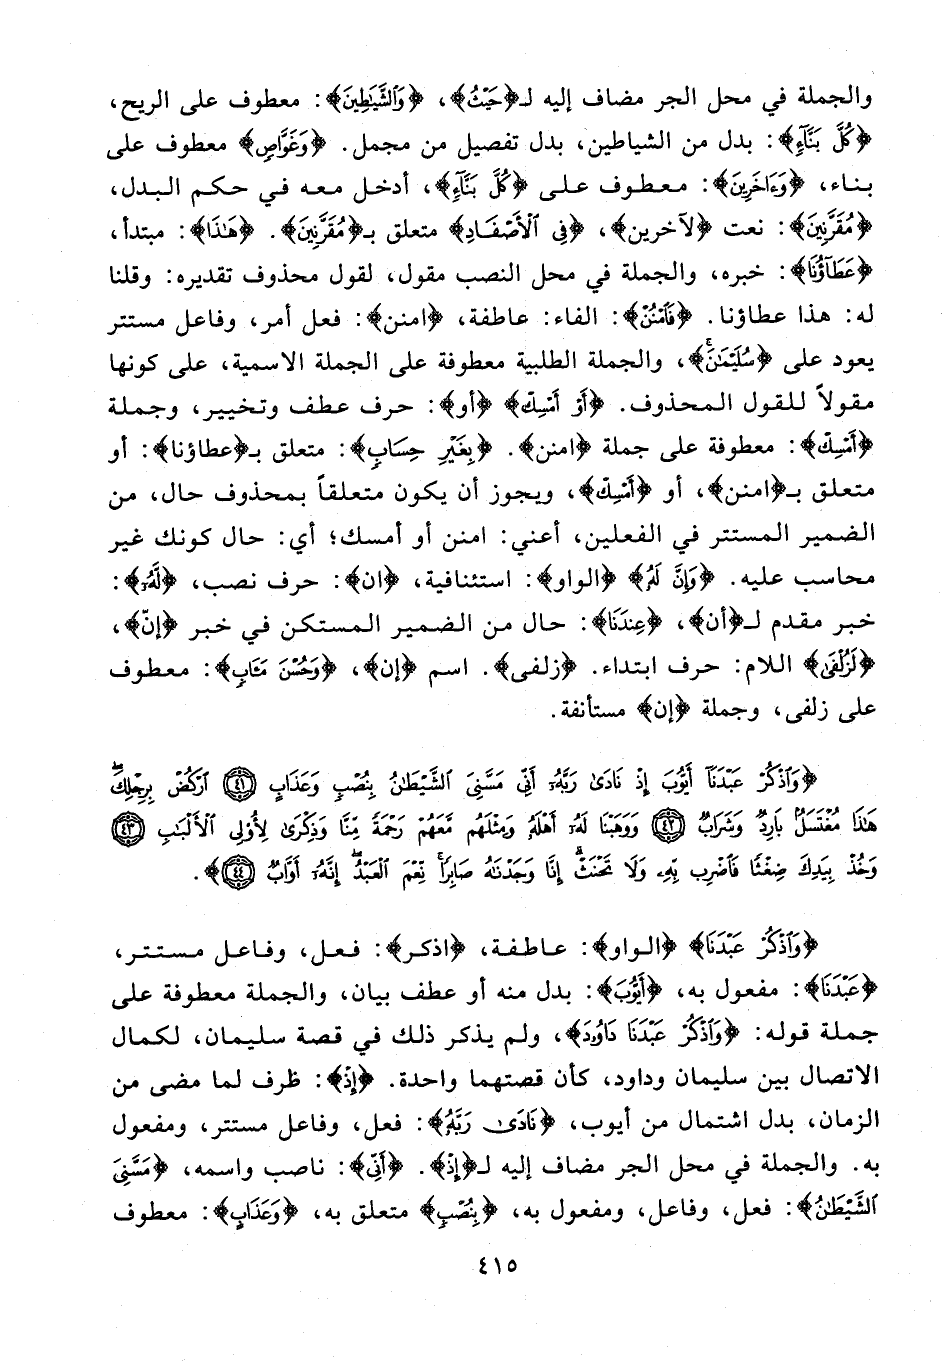 والجملة في محل الجر مضاف إليه لـ﴿حَيْثُ﴾، ﴿وَٱلشَّيَٰطِينَ﴾: معطوف على الريح،
﴿كُلَّ بَنَّآءٍ﴾: بدل من الشياطين، بدل تفصيل من مجمل. ﴿وَغَوَّاصٍ﴾ معطوف على
بناء، ﴿وَءَاخَرِينَ﴾: معطوف على ﴿كُلَّ بَنَّآءٍ﴾، أدخل معه في حكم البدل،
﴿مُقَرَّنِينَ﴾: نعت ﴿لآخرين﴾، ﴿فِى ٱلْأَصْفَادِ﴾ متعلق بـ﴿مُقَرَّنِينَ﴾. ﴿هَٰذَا﴾: مبتدأ،
﴿عَطَآؤُنَا﴾: خبره، والجملة في محل النصب مقول، لقول محذوف تقديره: وقلنا
له: هذا عطاؤنا. ﴿فَٱمْنُنْ﴾: الفاء: عاطفة، ﴿امنن﴾: فعل أمر، وفاعل مستتر
يعود على ﴿سُلَيْمَٰنَ﴾، والجملة الطلبية معطوفة على الجملة الاسمية، على كونها
مقولاً للقول المحذوف. ﴿أَوْ أَمْسِكْ﴾ ﴿أو﴾: حرف عطف وتخيير، وجملة
﴿أَمْسِكْ﴾: معطوفة على جملة ﴿امنن﴾. ﴿بِغَيْرِ حِسَابٍ﴾: متعلق بـ﴿عطاؤنا﴾: أو
متعلق بـ﴿امنن﴾، أو ﴿أَمْسِكْ﴾، ويجوز أن يكون متعلقاً بمحذوف حال، من
الضمير المستتر في الفعلين، أعني: امنن أو أمسك؛ أي: حال كونك غير
محاسب عليه. ﴿وَإِنَّ لَهُۥ﴾ ﴿الواو﴾: استئنافية، ﴿ان﴾: حرف نصب، ﴿لَهُۥ﴾:
خبر مقدم لـ﴿أن﴾، ﴿عِندَنَا﴾: حال من الضمير المستكن في خبر ﴿إنّ﴾،
﴿لَزُلْفَىٰ﴾ اللام: حرف ابتداء. ﴿زلفى﴾. اسم ﴿إن﴾، ﴿وَحُسْنَ مَـَٔابٍ﴾: معطوف
على زلفى، وجملة ﴿إن﴾ مستأنفة.
﴿وَٱذْكُرْ عَبْدَنَآ أَيُّوبَ إِذْ نَادَىٰ رَبَّهُۥٓ أَنِّى مَسَّنِىَ ٱلشَّيْطَٰنُ بِنُصْبٍ وَعَذَابٍ ٤١ ٱرْكُضْ بِرِجْلِكَ ۖ
هَٰذَا مُغْتَسَلٌۢ بَارِدٌ وَشَرَابٌ ٤٢ وَوَهَبْنَا لَهُۥٓ أَهْلَهُۥ وَمِثْلَهُم مَّعَهُمْ رَحْمَةً مِّنَّا وَذِكْرَىٰ لِأُو۟لِى ٱلْأَلْبَٰبِ ٤٣
وَخُذْ بِيَدِكَ ضِغْثًا فَٱضْرِب بِّهِۦ وَلَا تَحْنَثْ ۗ إِنَّا وَجَدْنَٰهُ صَابِرًا ۚ نِّعْمَ ٱلْعَبْدُ ۖ إِنَّهُۥٓ أَوَّابٌ ٤٤﴾.
﴿وَٱذْكُرْ عَبْدَنَا﴾ ﴿الواو﴾: عاطفة، ﴿اذكر﴾: فعل، وفاعل مستتر،
﴿عَبْدَنَا﴾: مفعول به، ﴿أَيُّوبَ﴾: بدل منه أو عطف بيان، والجملة معطوفة على
جملة قوله: ﴿وَٱذْكُرْ عَبْدَنَا دَاوُۥدَ﴾، ولم يذكر ذلك في قصة سليمان، لكمال
الاتصال بين سليمان وداود، كأن قصتهما واحدة. ﴿إِذْ﴾: ظرف لما مضى من
الزمان، بدل اشتمال من أيوب، ﴿نَادَىٰ رَبَّهُۥٓ﴾: فعل، وفاعل مستتر، ومفعول
به. والجملة في محل الجر مضاف إليه لـ﴿إِذْ﴾. ﴿أَنِّى﴾: ناصب واسمه، ﴿مَسَّنِىَ
ٱلشَّيْطَٰنُ﴾: فعل، وفاعل، ومفعول به، ﴿بِنُصْبٍ﴾ متعلق به، ﴿وَعَذَابٍ﴾: معطوف
٤١٥